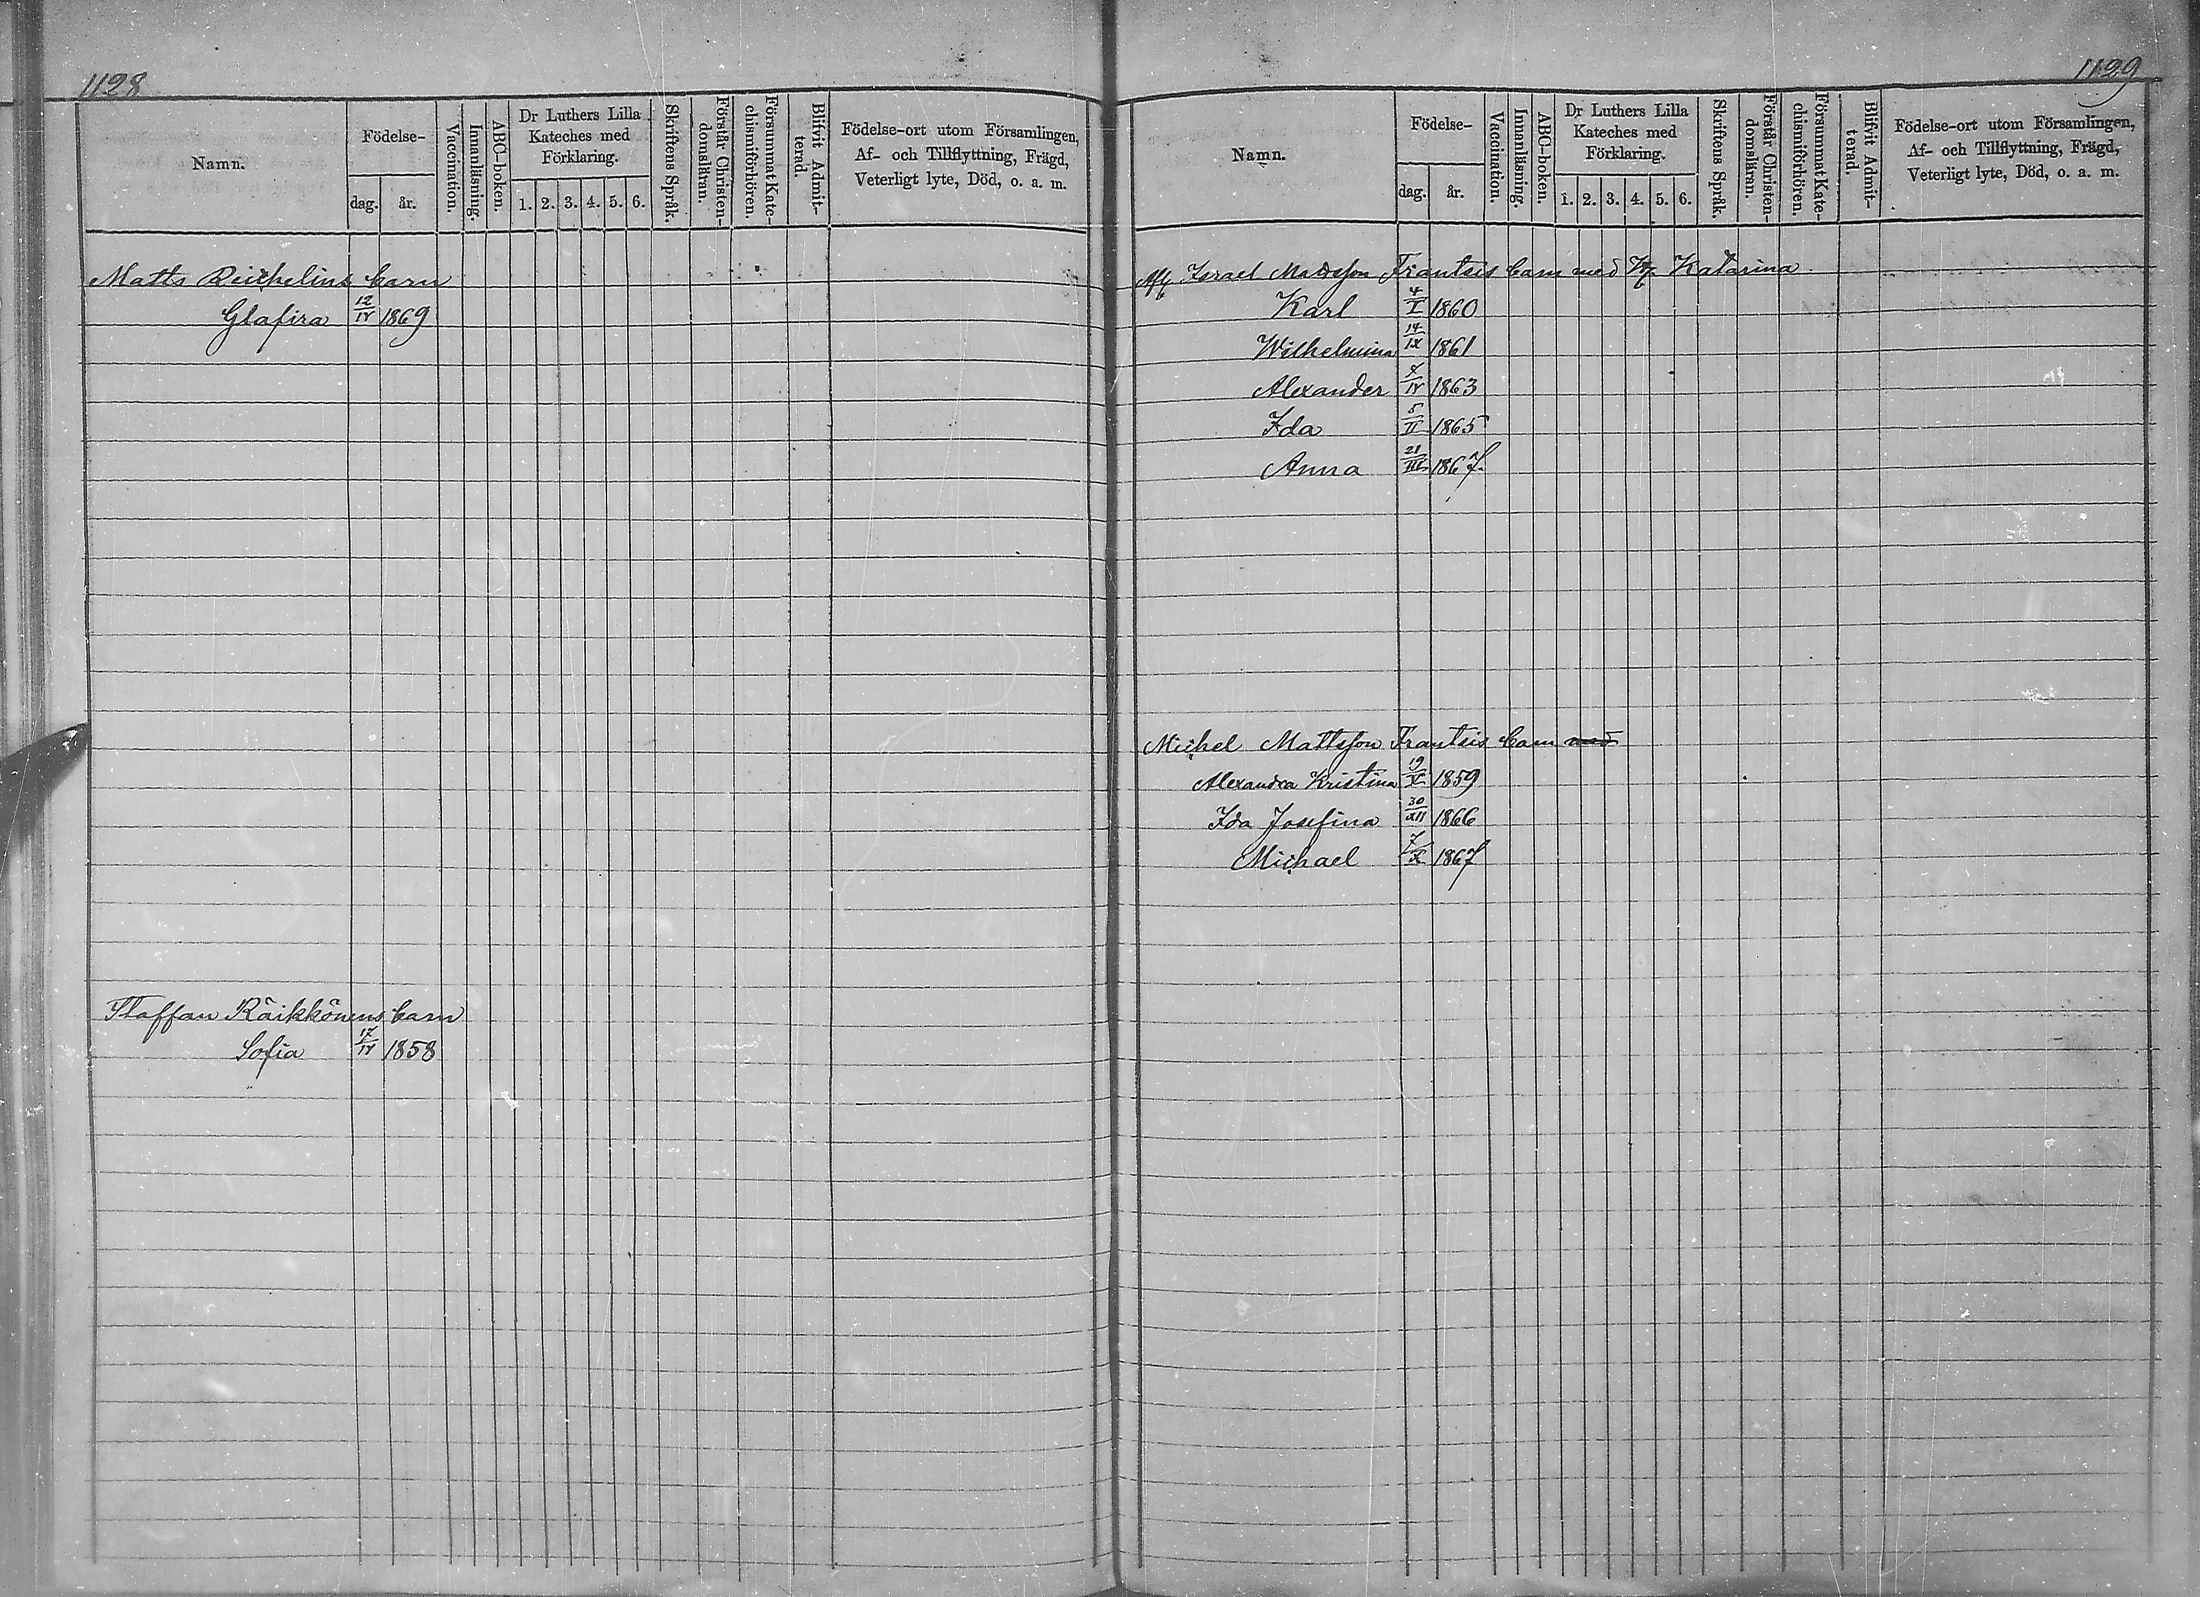 1128
Namn.
Födelse-
dag.
år.
Vaccination.
Innanläsning.
ABC-boken.
Dr Luthers Lilla
Kateches med
Förklaring.
1. 2. 3. 4. 5. 6.
Skriftens Språk.
Förstår Christen-
domsläran.
Försummat Kate-
chismiförhören.
Blifvit Admit-
terad.
Födelse-ort utom Församlingen,
Af- och Tillflyttning, Frägd,
Veterligt lyte, Död, o. a. m.
Matts Reichelins barn
Glafira 12/IV 1869
Staffan Räikkönens barn
Sofia 17/IV 1858
1129
Namn.
Födelse-
dag.
år.
Vaccination.
Innanläsning.
ABC-boken.
Dr Luthers Lilla
Kateches med
Förklaring.
1. 2. 3. 4. 5. 6.
Skriftens Språk.
Förstår Christen-
domsläran.
Försummat Kate-
chismiförhören.
Blifvit Admit-
terad.
Födelse-ort utom Församlingen,
Af- och Tillflyttning, Frägd,
Veterligt lyte, Död, o. a. m.
Israel Mattsson Frantsis barn med Katarina
Karl 4/I 1860
Wilhelmina 14/IX 1861
Alexander /IV 1863
Ida 5/II 1865
Anna 21/III 1867
Michel Mattsson Frantsis barn med
Alexandra Kristina 19/X 1859
Ida Josefina 30/XII 1866
Michael 7/X 1867